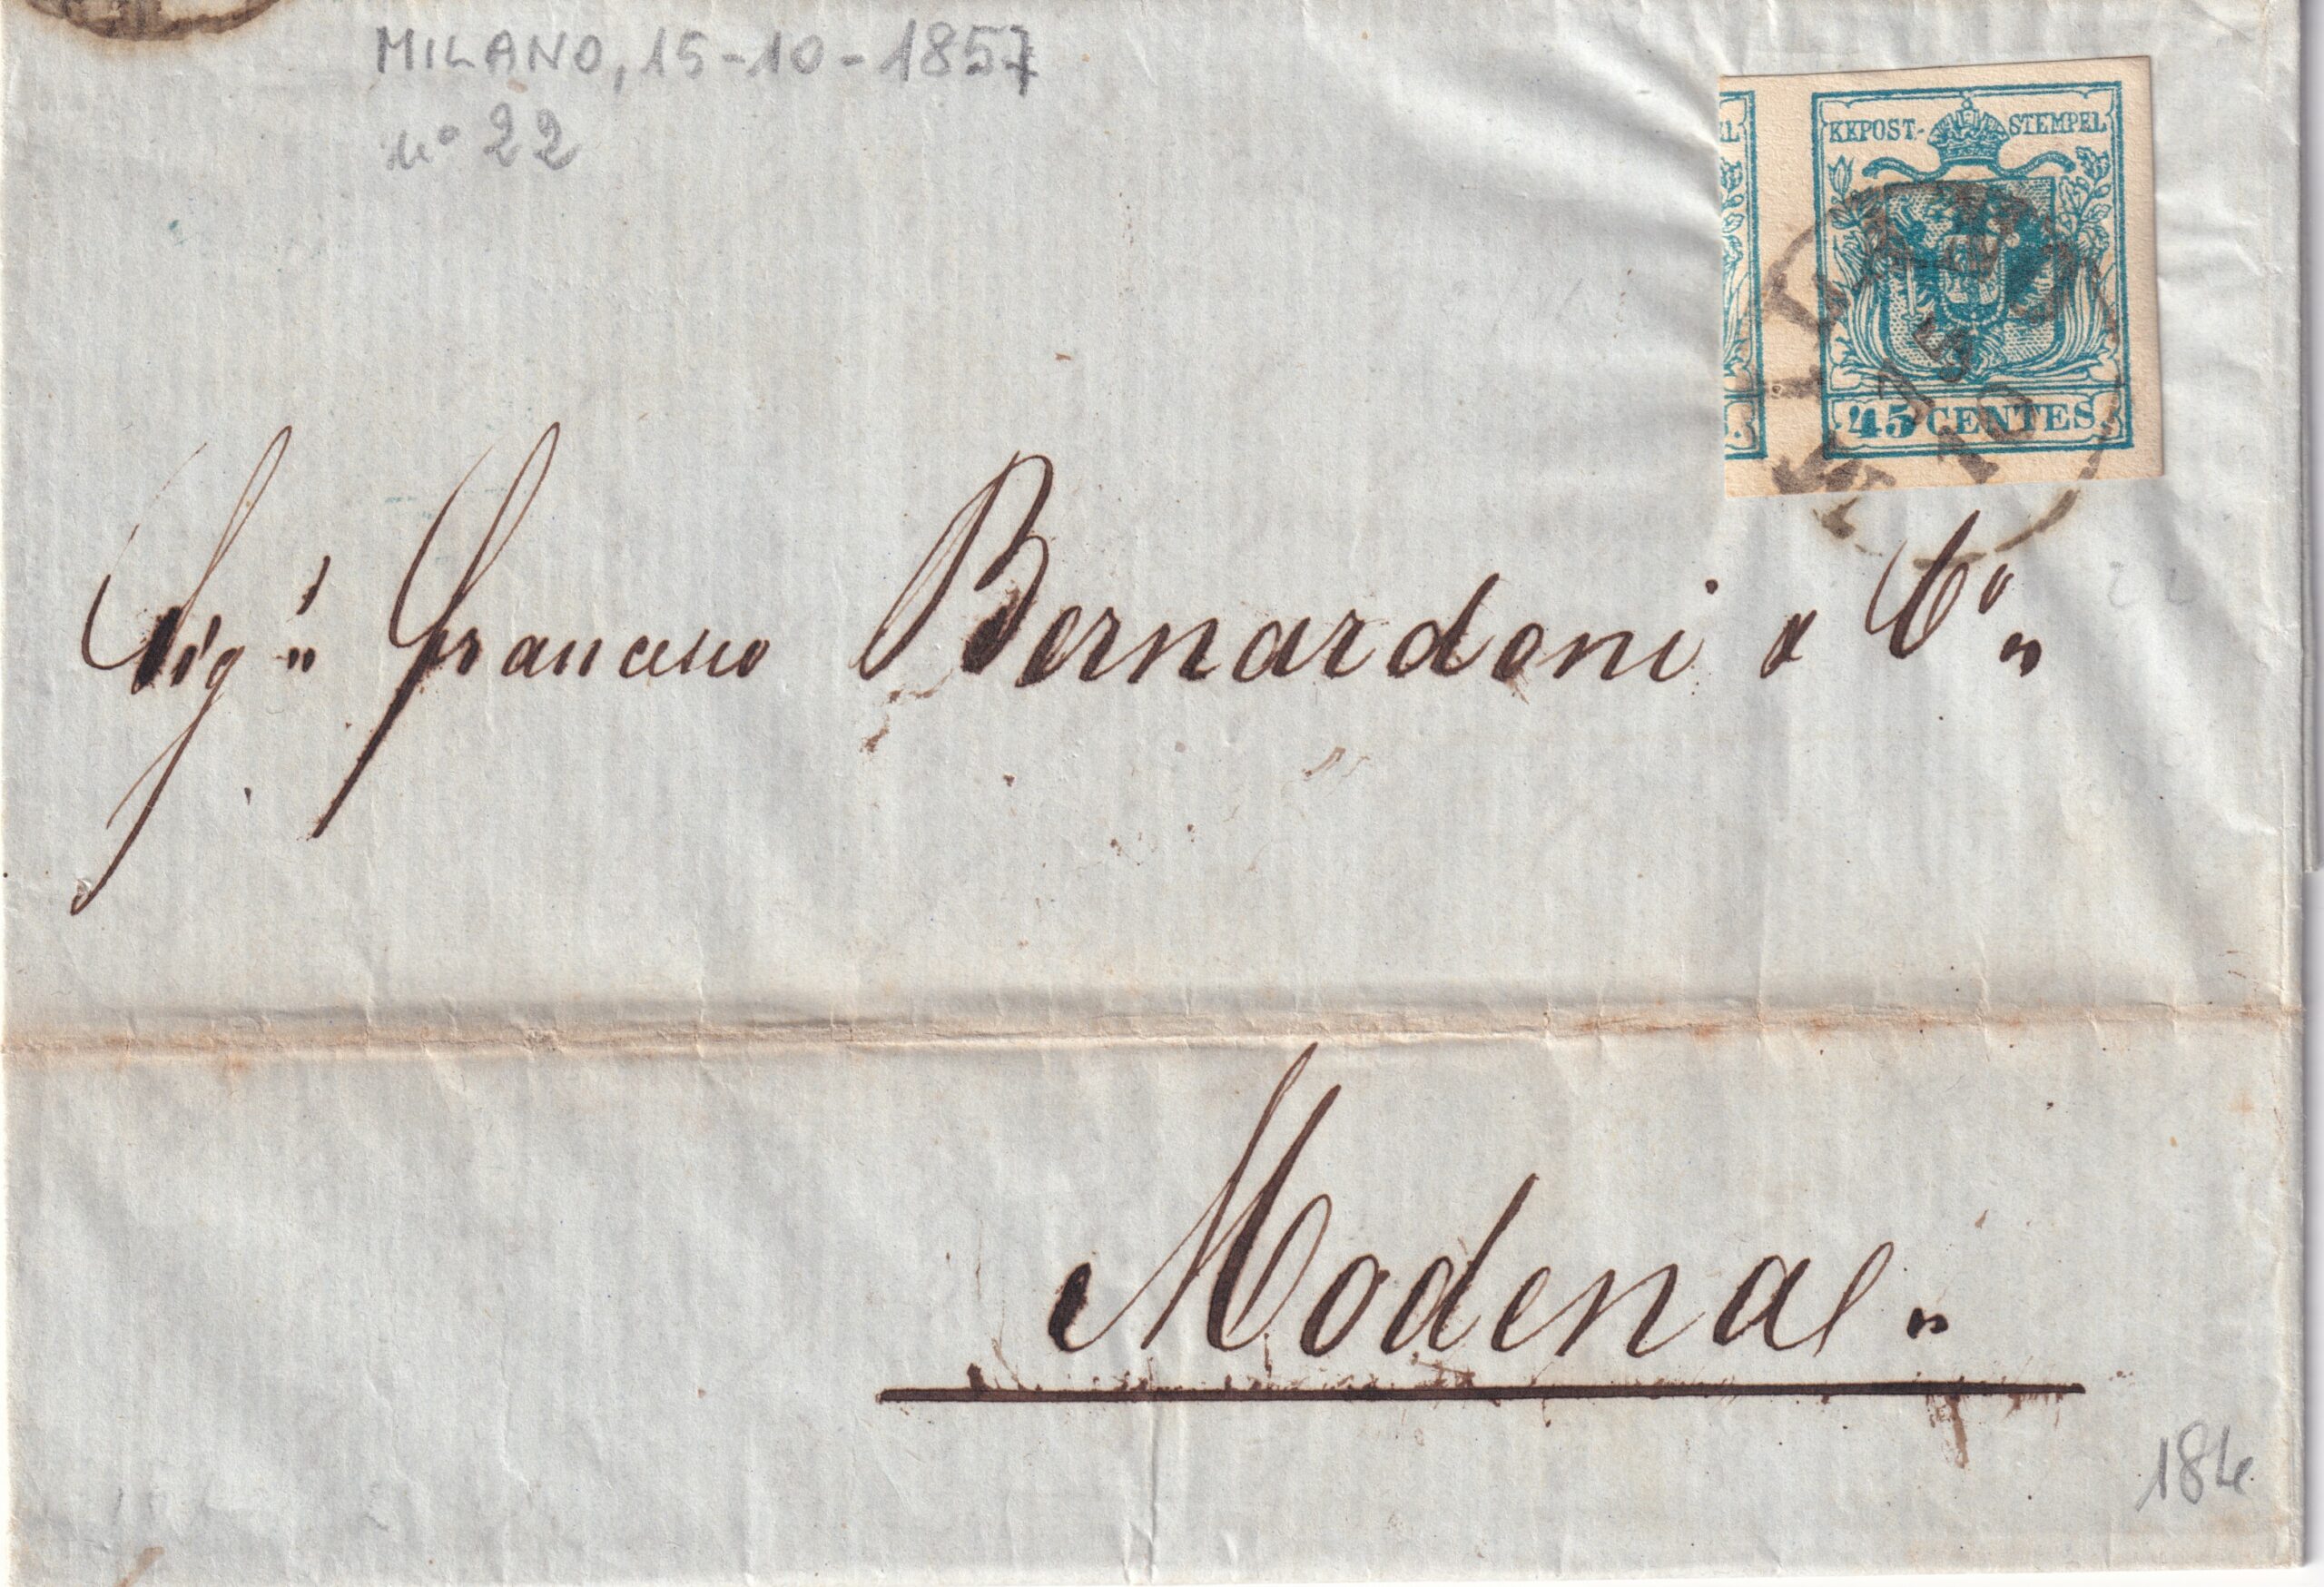 MILANO, 15-10-1857
n° 22
KKPOST-STEMPEL
45 CENTES.
MILANO
15
10
Sigri Francesco Bernardoni & Co
22
Modena
184